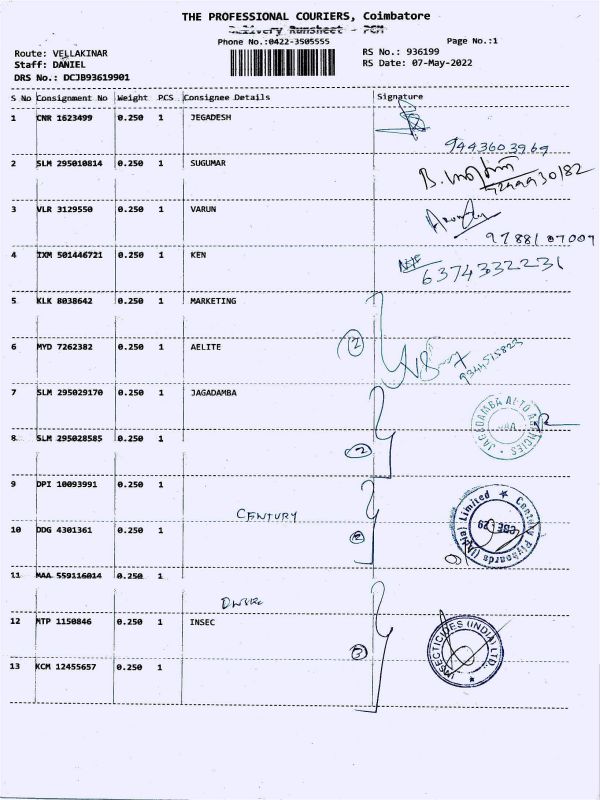 THE PROFESSIONAL COURIERS, Coimbatore
Delivery Runsheet - PCM
Phone No.:0422-3505555
Page No.:1
Route: VELLAKINAR
RS No.: 936199
Staff: DANIEL
RS Date: 07-May-2022
DRS No.: DCJB93619901
S No Consignment No Weight PCS Consignee Details Signature
1 CNR 1623499 0.250 1 JEGADESH
9443603969
2 SLM 295010814 0.250 1 SUGUMAR
3 VLR 3129550 0.250 1 VARUN
4 TXM 501446721 0.250 1 KEN
6374332231
5 KLK 8038642 0.250 1 MARKETING
6 MYD 7262382 0.250 1 AELITE 2
9344515823
7 SLM 295029170 0.250 1 JAGADAMBA
JAGADAMBA AUTO AGENCIES
8 SLM 295028585 0.250 1
2
9 DPI 10093991 0.250 1
CENTURY
Century Plyboards (India) Limited
10 DDG 4301361 0.250 1
11 MAA 559116014 0.250 1
12 MTP 1150846 0.250 1 INSEC
INSECTICIDES (INDIA) LTD.
3
13 KCM 12455657 0.250 1